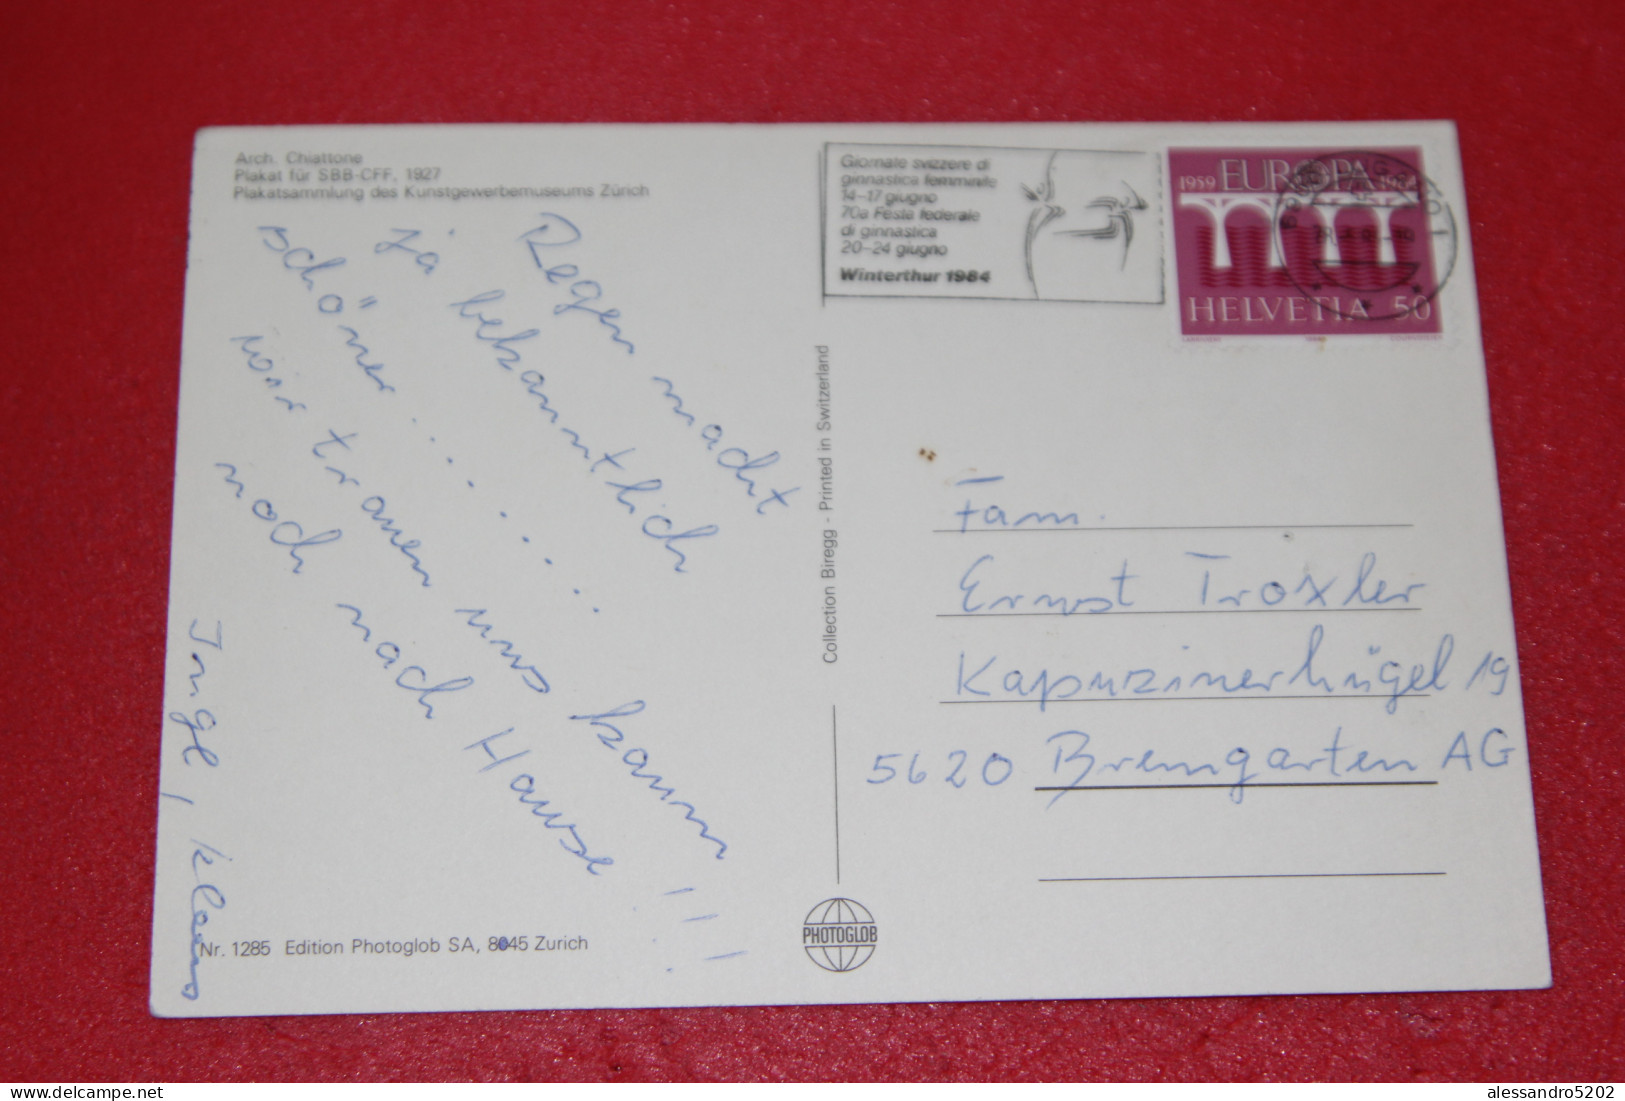 Arch. Chiattone
Plakat für SBB-CFF, 1927
Plakatsammlung des Kunstgewerbemuseums Zürich
Regen macht
ja bekanntlich
schöner . . . . . . .
wir trauen uns kaum
noch nach Hause !!!
Inge, Klaus
Nr. 1285 Edition Photoglob SA, 8045 Zurich
Collection Biregg - Printed in Switzerland
PHOTOGLOB
Giornate svizzere di
ginnastica femminile
14-17 giugno
70a Festa federale
di ginnastica
20-24 giugno
Winterthur 1984
1959 EUROPA 1984
HELVETIA 50
Fam.
Ernst Troxler
Kapuzinerhügel 19
5620 Bremgarten AG
delcampe.net
alessandro5202